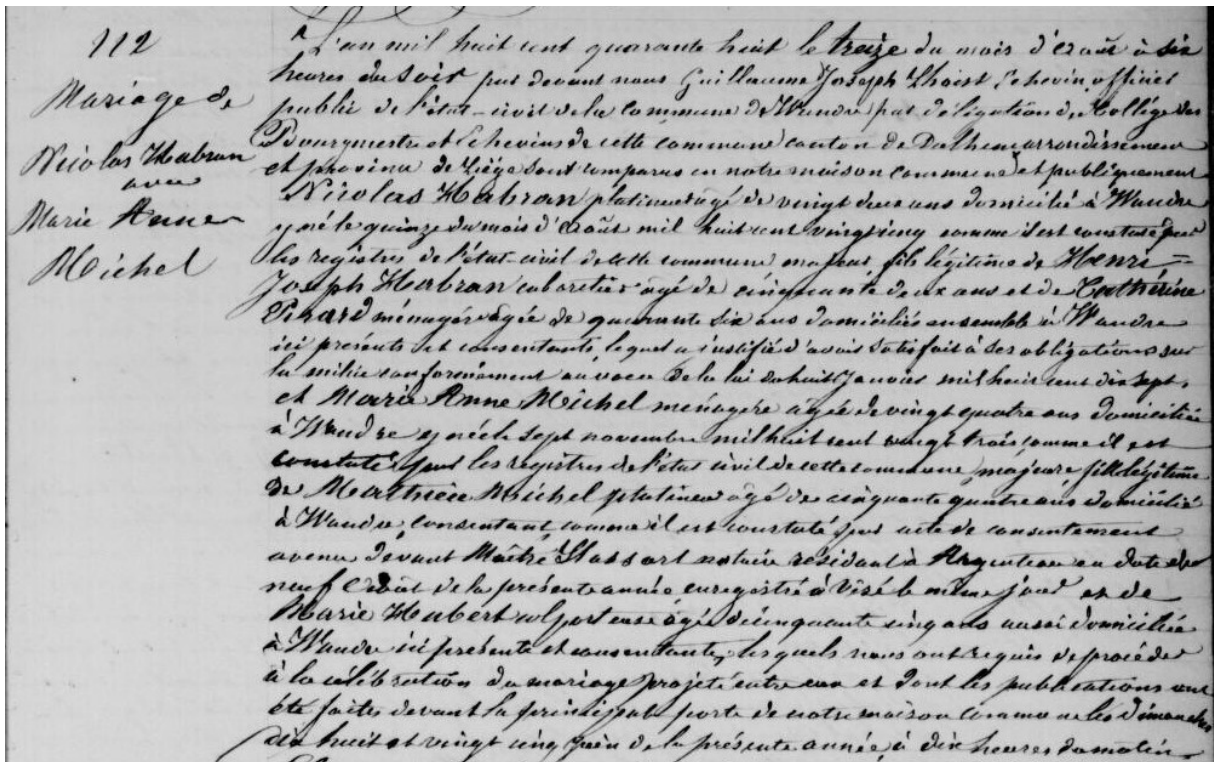 112
Mariage de
Nicolas Habran
avec
Marie Anne
Michel
L'an mil huit cent quarante huit le treize du mois d'Août à six
heures du soir par devant nous Guillaume Joseph Lhoist Echevin, officier
public de l'état-civil de la commune de Wandre par délégation du Collége des
Bourgmestre et Echevins de cette commune canton de Dalhem arrondissement
et province de Liége sont comparus en notre maison commune et publiquement
Nicolas Habran platineur agé de vingt deux ans domicilié à Wandre
y né le quinze du mois d'Août mil huit cent vingt cinq comme il est constaté par
les registres de l'état-civil de cette commune majeur, fils légitime de Henri=
Joseph Habran cabaretier agé de cinquante deux ans et de Cathérine
Pirard ménagère agée de quarante six ans domiciliés ensemble à Wandre
ici présents et consentants, lequel a justifié d'avoir satisfait à ses obligations sur
la milice conformément au voeu de la loi du huit Janvier mil huit cent dix sept,
et Marie Anne Michel ménagère agée de vingt quatre ans domiciliée
à Wandre y née le sept novembre mil huit cent vingt trois comme il est
constaté par les registres de l'état civil de cette commune, majeure, fille légitime
de Mathieu Michel platineur agé de cinquante quatre ans domicilié
à Wandre, consentant, comme il est constaté par acte de consentement
avenu devant Maître notaire résidant à Argenteau en date du
neuf Août de la présente année enregistré à Visé le même jour et de
Marie Hubert colporteuse agée de cinquante cinq ans aussi domiciliée
à Wandre ici présente et consentante, lesquels nous ont requis de procéder
à la célébration du mariage projeté entre eux et dont les publications ont
été faites devant la principale porte de notre maison commune les dimanches
dix huit et vingt cinq juin de la présente année, à dix heures du matin